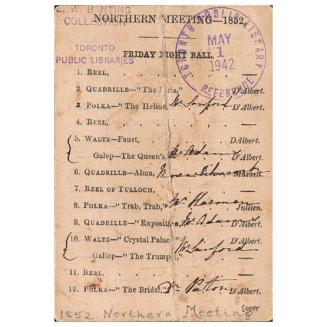 NORTHERN MEETING—1852
T. W. B NTING
COLLECTION
TORONTO
PUBLIC LIBRARIES
TORONTO PUBLIC LIBRARY
MAY
1
1942
REFERENCE
FRIDAY NIGHT BALL.
1. REEL,
2. QUADRILLE—"The D'Albert.
3. POLKA—"The Helina, Mr Sanford D'Albert.
4. REEL,
5. WALTZ—Faust, D'Albert.
Galop—The Queen's Adams D'Albert.
6. QUADRILLE—Alma,
7. REEL OF TULLOCH,
8. POLKA—"Trab, Trab," Mr Jullien.
9. QUADRILLE—"Exposit Mr Adams D'Albert.
10. WALTZ—"Crystal Palac Mr Sanford D'Albert.
Galop—"The Trump
11. REEL.
12. POLKA—"The Bridal, Mr
1852. Northern Meeting